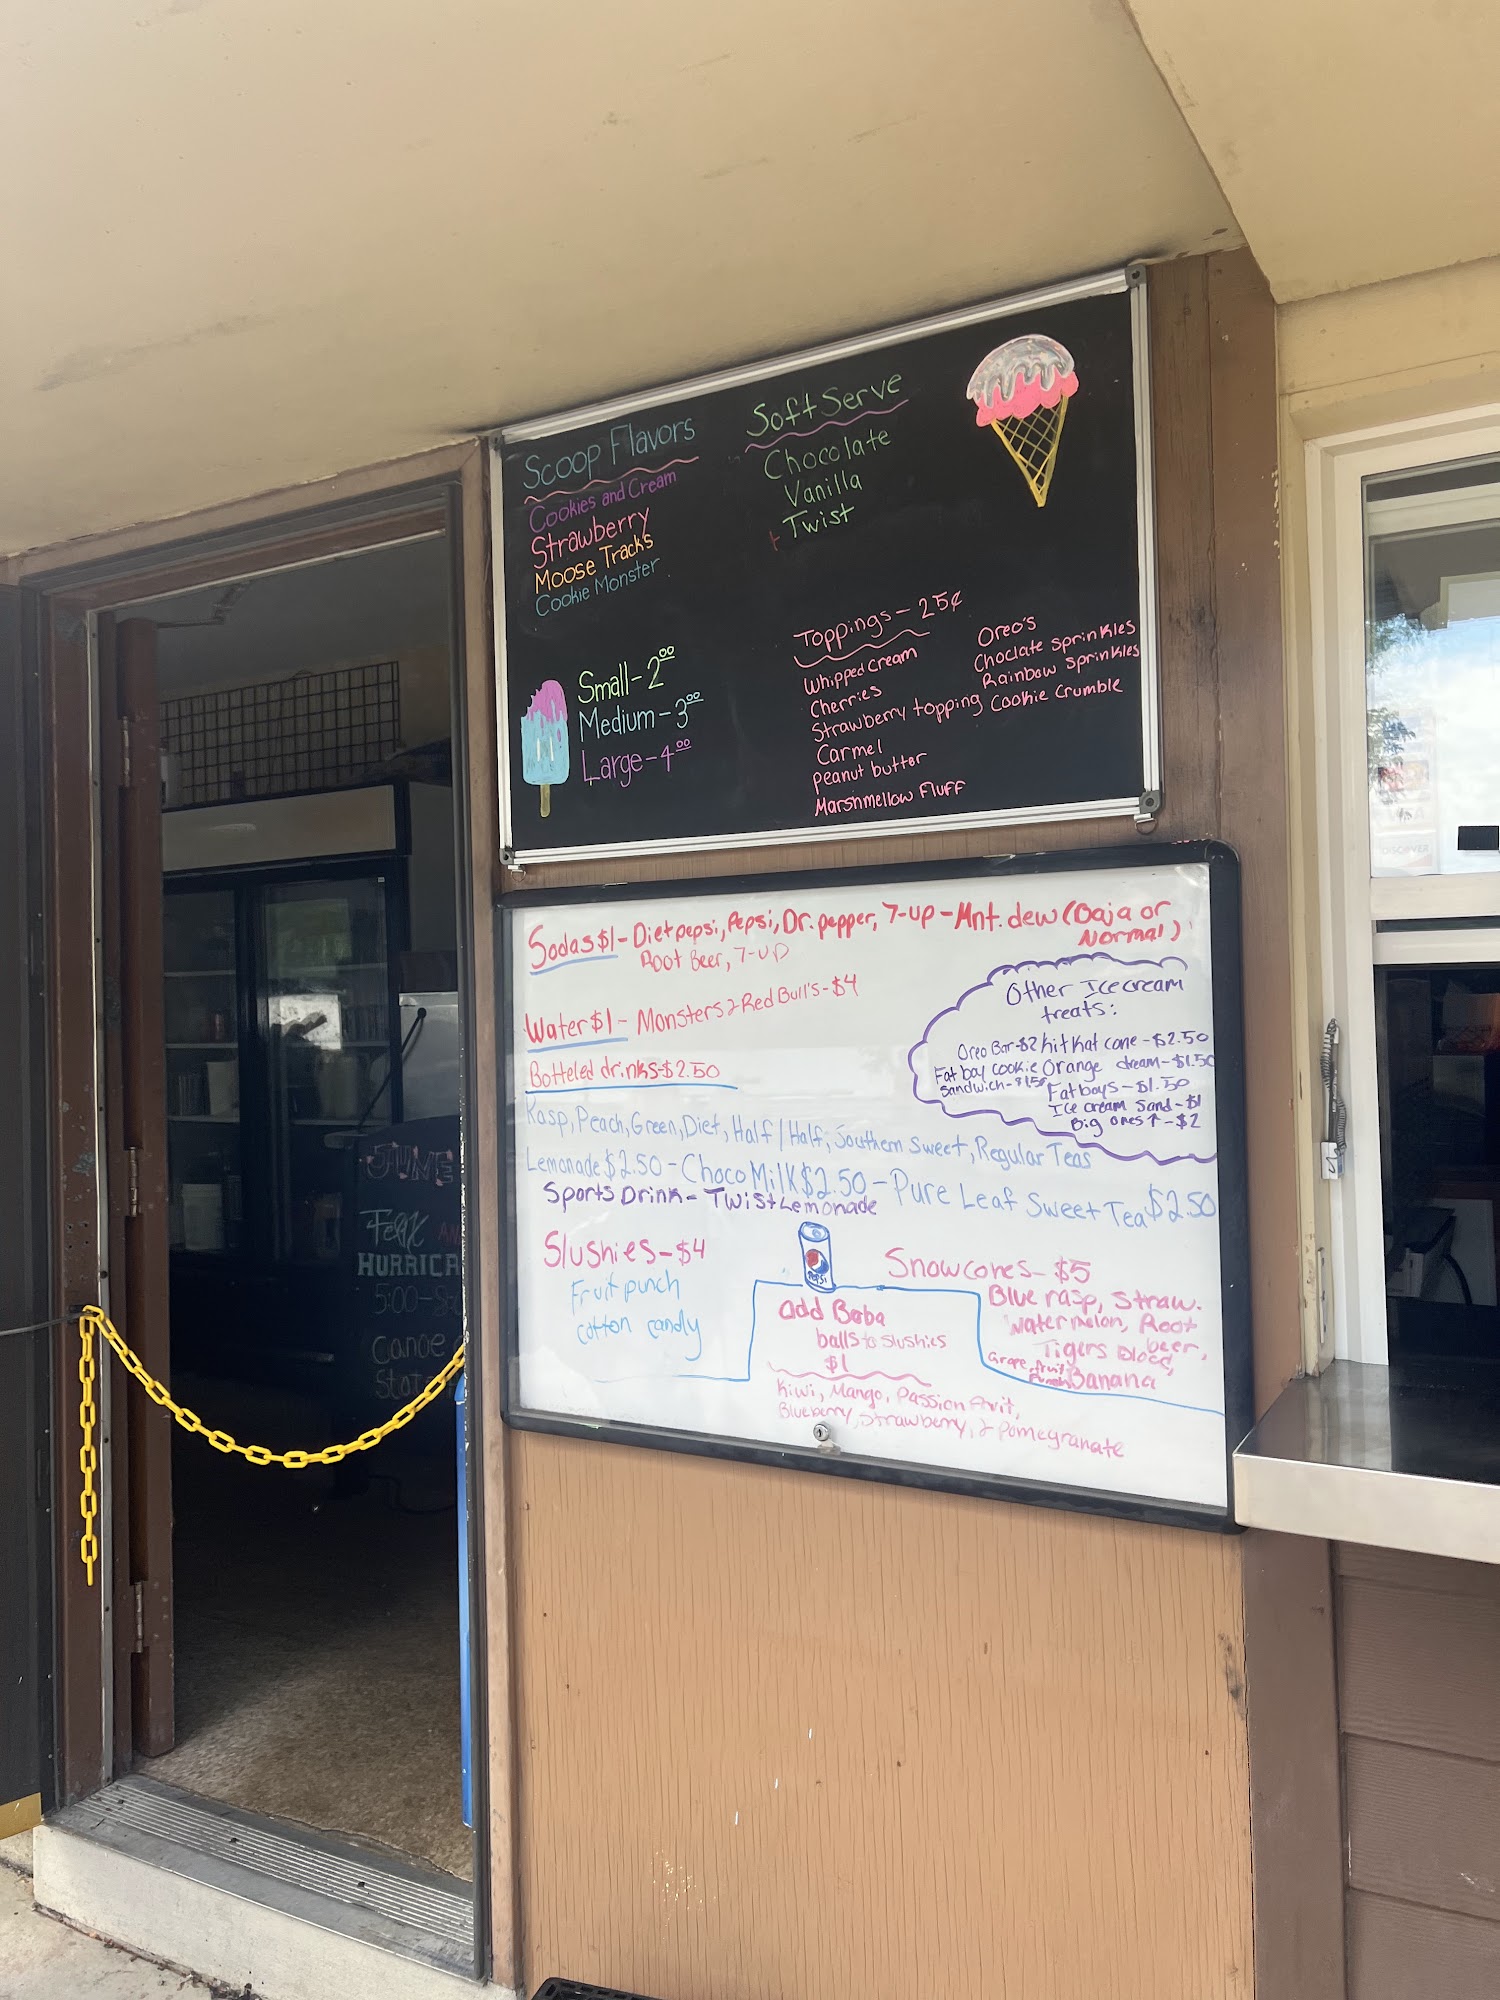 Scoop Flavors
Cookies and Cream
Strawberry
Moose Tracks
Cookie Monster
Small - 2.00
Medium - 3.00
Large - 4.00
Soft Serve
Chocolate
Vanilla
Twist
Toppings - 25¢
Whipped Cream
Cherries
Strawberry topping
Carmel
Peanut butter
Marshmellow Fluff
Oreo's
Choclate sprinkles
Rainbow sprinkles
Cookie Crumble
Sodas $1 - Diet pepsi, Pepsi, Dr. pepper, 7-up - Mnt. dew (Baja or
Normal)
Root Beer, 7-UP
Water $1 - Monsters & Red Bull's - $4
Botteled drinks - $2.50
Rasp, Peach, Green, Diet, Half / Half, Southern Sweet, Regular Teas
Lemonade $2.50 - Choco Milk $2.50 - Pure Leaf Sweet Tea $2.50
Sports Drink - Twist Lemonade
Other Ice cream
treats:
Oreo Bar - $2 Kit Kat cone - $2.50
Fat boy cookie Orange dream - $1.50
Sandwich - $1.50 Fatboys - $1.50
Ice cream Sand - $1
Big ones ↑ - $2
Slushies - $4
Fruit punch
cotton candy
PEPSI
add Boba
balls to slushies
$1
Kiwi, Mango, Passion fruit,
Blueberry, Strawberry, & Pomegranate
Snowcones - $5
Blue rasp, Straw.
Watermelon, Root
beer,
Tigers Blood,
Grape, fruit
Punch Banana
JUNE
HURRICA
5:00-8:
Canoe
DISCOVER